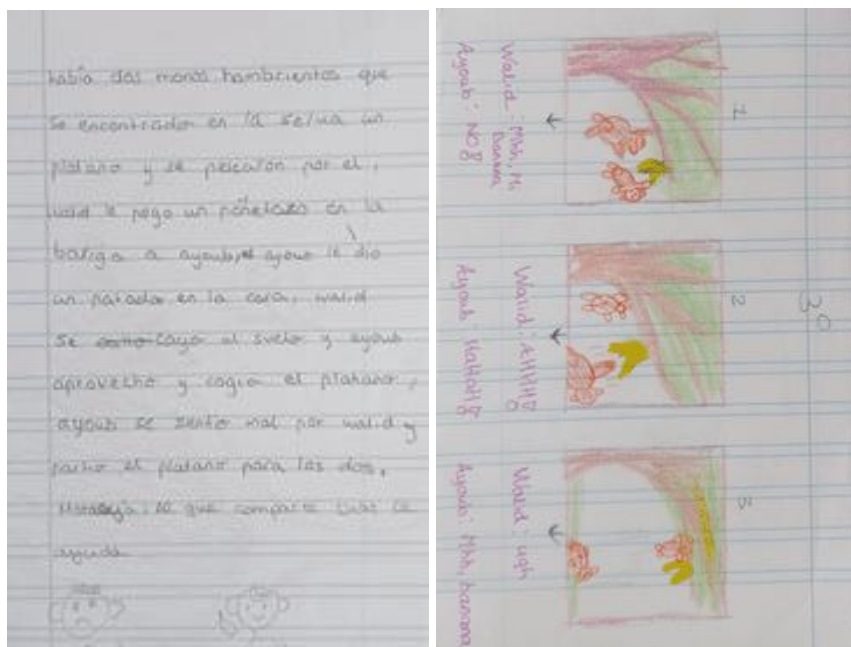 había dos monos hambrientos que
se encontrador en la selva un
platano y se pelearon por el,
walid le pego un puñetazo en la
bariga a ayoub, ayoub le dio
un patada en la cara, walid
se cayo al suelo y ayoub
aprovecho y cogio el platano,
ayoub se sintio mal por walid y
partio el platano para los dos.
que comparte
ayuda
3º
1
Walid: Mhh, Mi
Banana
Ayoub: NO!
2
Walid: AHHH!
Ayoub: HaHaH!
3
Walid: ugh
Ayoub: Mhh, banana